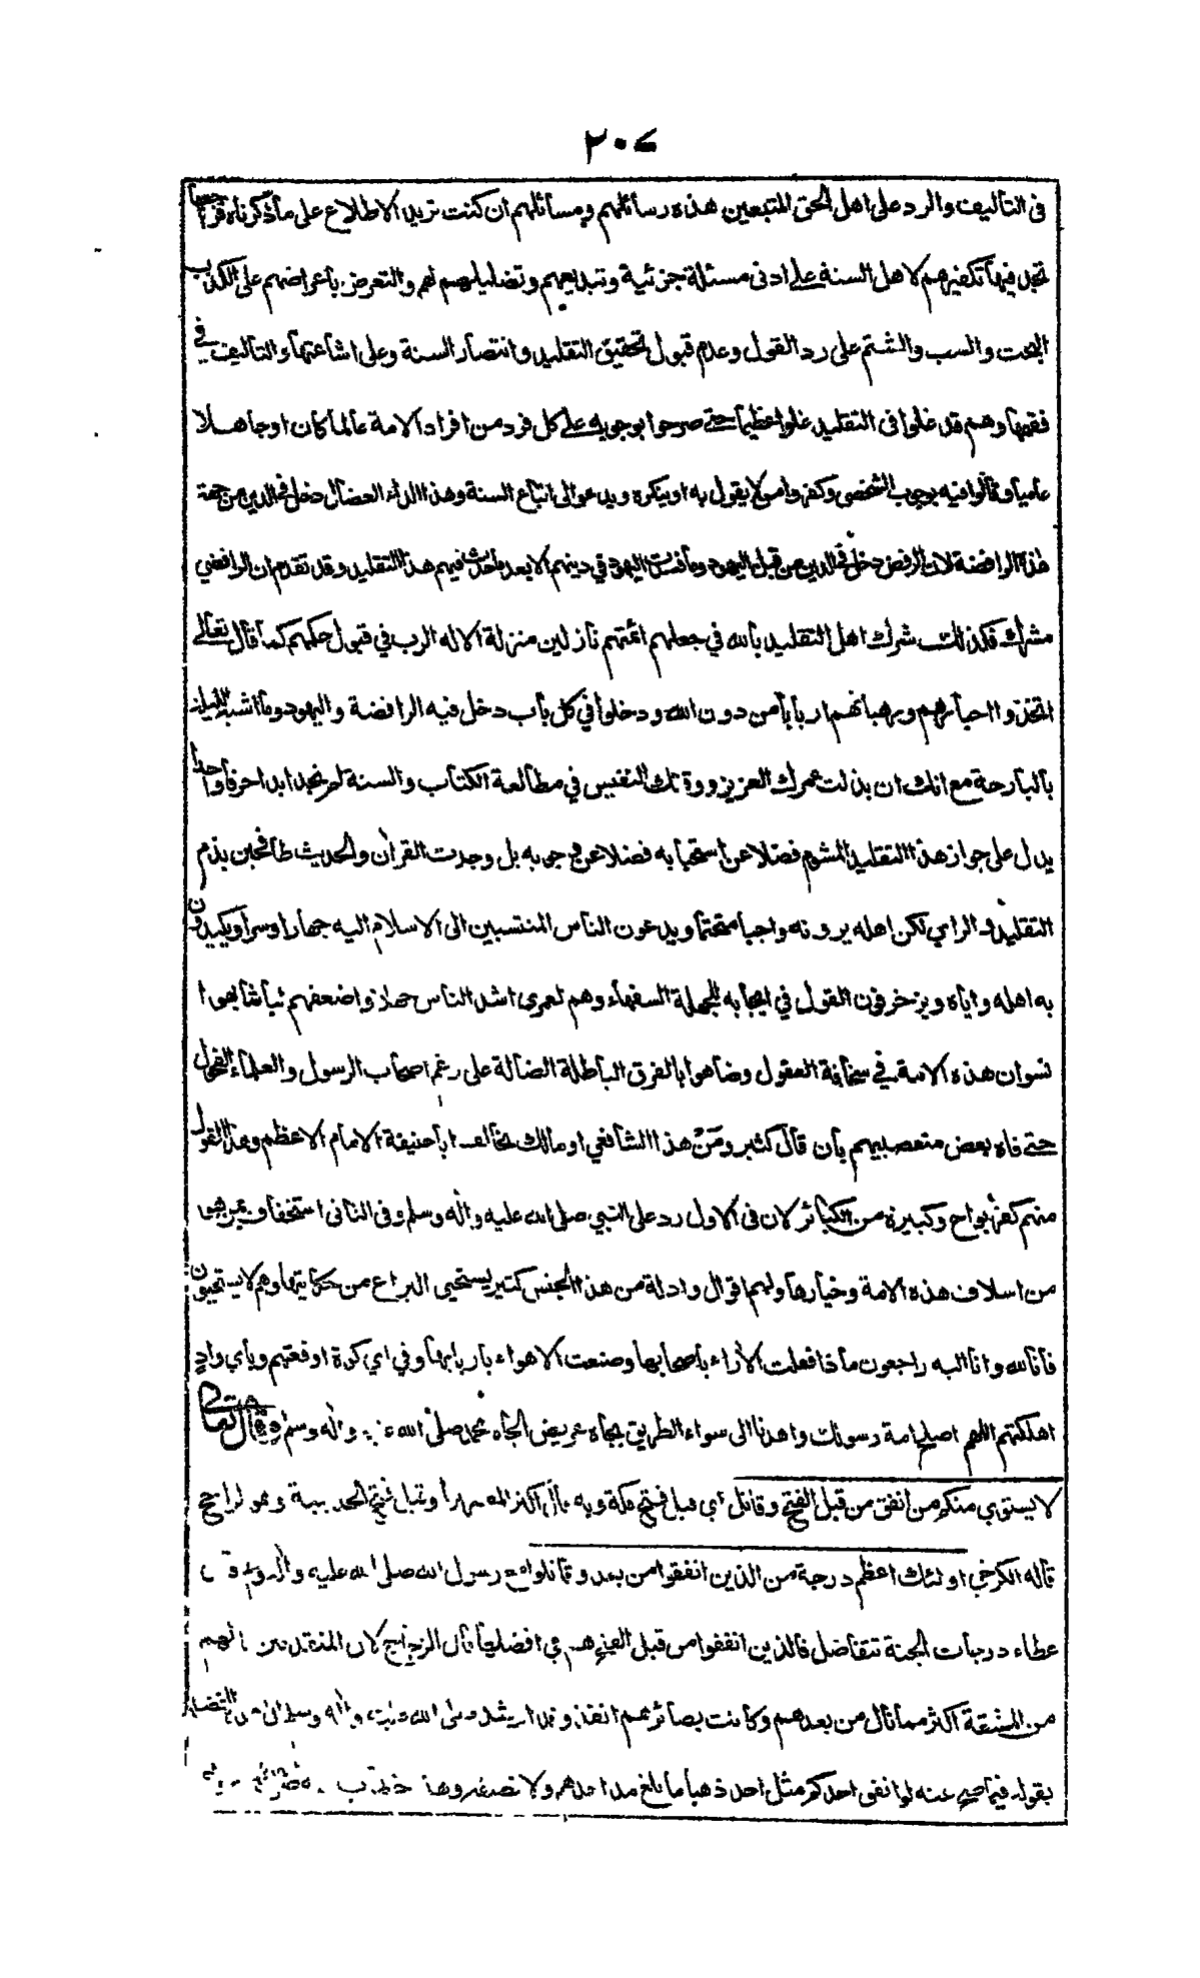 ٢٠٧
فى التأليف والرد على اهل الحق المتبعين هذه رسائلهم ومسائلهم ان كنت تريد الاطلاع على ما ذكرناه فراجعها
تجد فيها تكفيرهم لاهل السنة على ادنى مسئلة جزئية وتبديعهم وتضليلهم لهم والتعرض باعراضهم على الكذب
البحت والسب والشتم على رد القول وعدم قبول تحقيق التقليد وانتصار السنة وعلى اشاعتها والتأليف في
فقهها وهم قد غلوا فى التقليد غلوا عظيما حتى صرحوا بوجوبه على كل فرد من افراد الامة عالما كان او جاهلا
عاميا وقالوا فيه بوجوب الشخصى وكفروا من لا يقول به او ينكره ويدعو الى اتباع السنة وهذا الداء العضال دخل في الدين من جهة
هذه الرافضة لان الرفض دخل في الدين من قبل اليهود وما فسدت اليهود في دينهم الا بعد ما حدث فيهم هذا التقليد وقد تقدم ان الرافضي
مشرك فكذلك شرك اهل التقليد بالله في جعلهم ائمتهم نازلين منزلة الاله الرب في قبول حكمهم كما قال تعالى
اتخذوا احبارهم ورهبانهم اربابا من دون الله ودخلوا في كل باب دخل فيه الرافضة واليهود وما اشبه الليلة
بالبارحة مع انك ان بذلت عمرك العزيز ووقتك النفيس في مطالعة الكتاب والسنة لم تجد ابدا حرفا واحدا
يدل على جواز هذا التقليد المشوم فضلا عن استحبابه فضلا عن وجوبه بل وجدت القرأن والحديث طافحين بذم
التقليد والراى لكن اهله يرونه واجبا متحتما ويدعون الناس المنتسبين الى الاسلام اليه جهارا وسرا ويكيدون
به اهله واياه ويزخرفون القول في ايجابه للجهلة السفهاء وهم لعمرى اشد الناس واضعفهم شابهوا
نسوان هذه الامة في سخافة العقول وضاهوا بالفرق الباطلة الضالة على رغم اصحاب الرسول والعلماء الفحول
حتى فاه بعض متعصبيهم بان قال كثير ومن هذا الشافعي او مالك خالف ابا حنيفة الامام الاعظم وهذا القول
منهم كفر بواح وكبيرة من الكبائر لان فى الاول رد على النبي صلى الله عليه واله وسلم وفى الثانى استخفاف بمن هما
من اسلاف هذه الامة وخيارها ولهم اقوال وادلة من هذا الجنس كثير يستحيى اليراع من حكايتها وهم لا يستحيون
فانا لله وانا اليه راجعون ماذا فعلت الأراء باصحابها وصنعت الاهواء باربابها وفي اي كوة اوقعتهم وباي واد
اهلكتهم اللهم اصلح امة رسولك واهدنا الى سواء الطريق بجاه عريض الجاه محمد صلى الله عليه واله وسلم وقال تعالى
لا يستوى منكم من انفق من قبل الفتح وقاتل اى قبل فتح مكة وبه قال اكثر او قبل فتح الحديبية وهو الراجح
قاله الكرخي اولئك اعظم درجة من الذين انفقوا من بعد وقاتلوا مع رسول الله صلى الله عليه واله وسلم
عطاء درجات الجنة تتفاضل فالذين انفقوا من قبل الفتح هم في افضلها قال الزجاج لان المتقدمين نالهم
من المشقة اكثر مما نال من بعدهم وكانت بصائرهم انفذ وقد ارشد صلى الله عليه واله وسلم الى
بقوله فيما صح عنه لو انفق احدكم مثل احد ذهبا ما بلغ مد احدهم ولا نصيفه وهذا خطاب